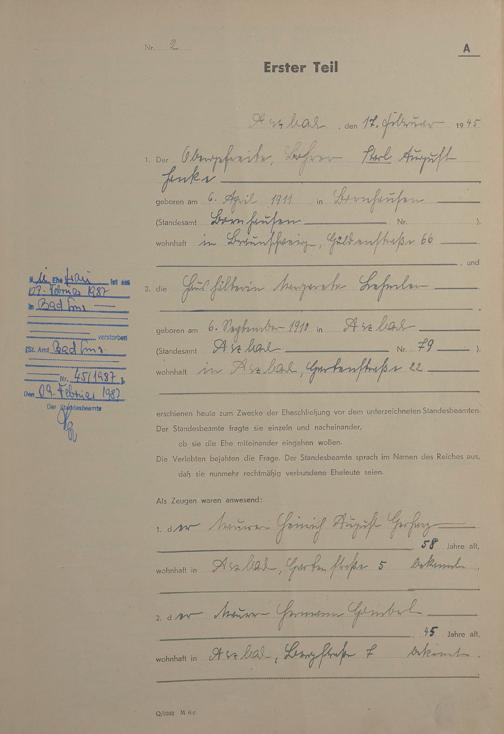 Nr. 2
A
Erster Teil
Arzbach, den 17. Februar 1945
1. Der Obergefreite, Karl August
geboren am 6. April 1911 in Bornhausen
(Standesamt Bornhausen Nr. ).
wohnhaft in Braunschweig, Güldenstraße 66
, und
2. die Haushälterin Margarete
geboren am 6. September 1910 in Arzbach
(Standesamt Arzbach Nr. 79 ).
wohnhaft in Arzbach, Gartenstraße 22
erschienen heute zum Zwecke der Eheschließung vor dem unterzeichneten Standesbeamten.
Der Standesbeamte fragte sie einzeln und nacheinander,
ob sie die Ehe miteinander eingehen wollen.
Die Verlobten bejahten die Frage. Der Standesbeamte sprach im Namen des Reiches aus,
daß sie nunmehr rechtmäßig verbundene Eheleute seien.
Als Zeugen waren anwesend:
1. der Maurer Heinrich August
58 Jahre alt,
wohnhaft in Arzbach, Gartenstraße 5 bekannt.
2. der Maurer Hermann
45 Jahre alt,
wohnhaft in Arzbach, Bergstraße 7 bekannt.
Ehefrau ist am
07. Februar 1987
in Bad Ems
verstorben
(St. Amt Bad Ems
Nr. 45/1987 ).
Den 09. Februar 1987
Der Standesbeamte